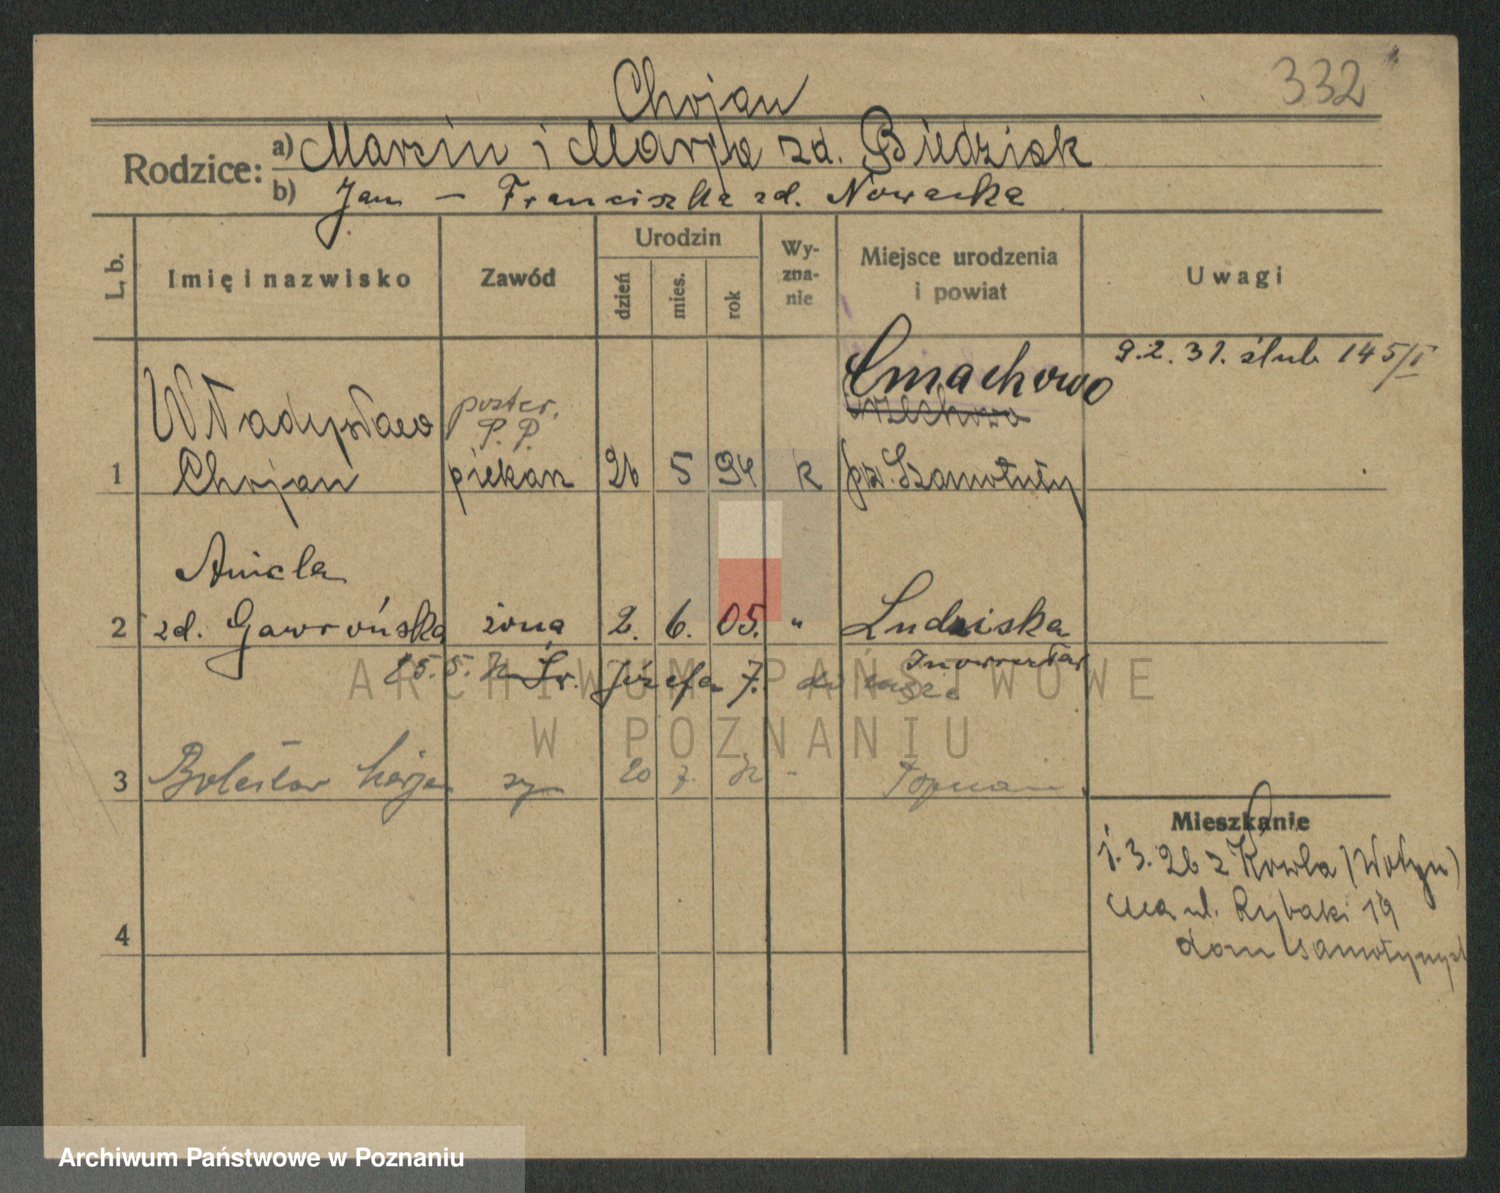 332
Chojan
Rodzice:
a) Marcin i Marja zd. Biedziak
b) Jan — Franciszka zd. Nowacka
L. b.
Imię i nazwisko
Zawód
Urodzin
dzień
mies.
rok
Wy-
zna-
nie
Miejsce urodzenia
i powiat
Uwagi
9.2.31. ślub 145/I
1
Władysław
Chojan
poster.
P.P.
piekarz
26 5 94 k
Ćmachowo
pw. Szamotuły
2
Aniela
zd. Gawrońska
żona
2. 6. 05. "
Ludziska
Inowrocław
25.5. Św. Józefa 7.
3
Bolesław
20 7.
Poznań
4
Mieszkanie
1.3.26 z Kowla (Wołyń)
na ul. Rybaki 19
dom samotnych
ARCHIWUM PAŃSTWOWE
W POZNANIU
Archiwum Państwowe w Poznaniu